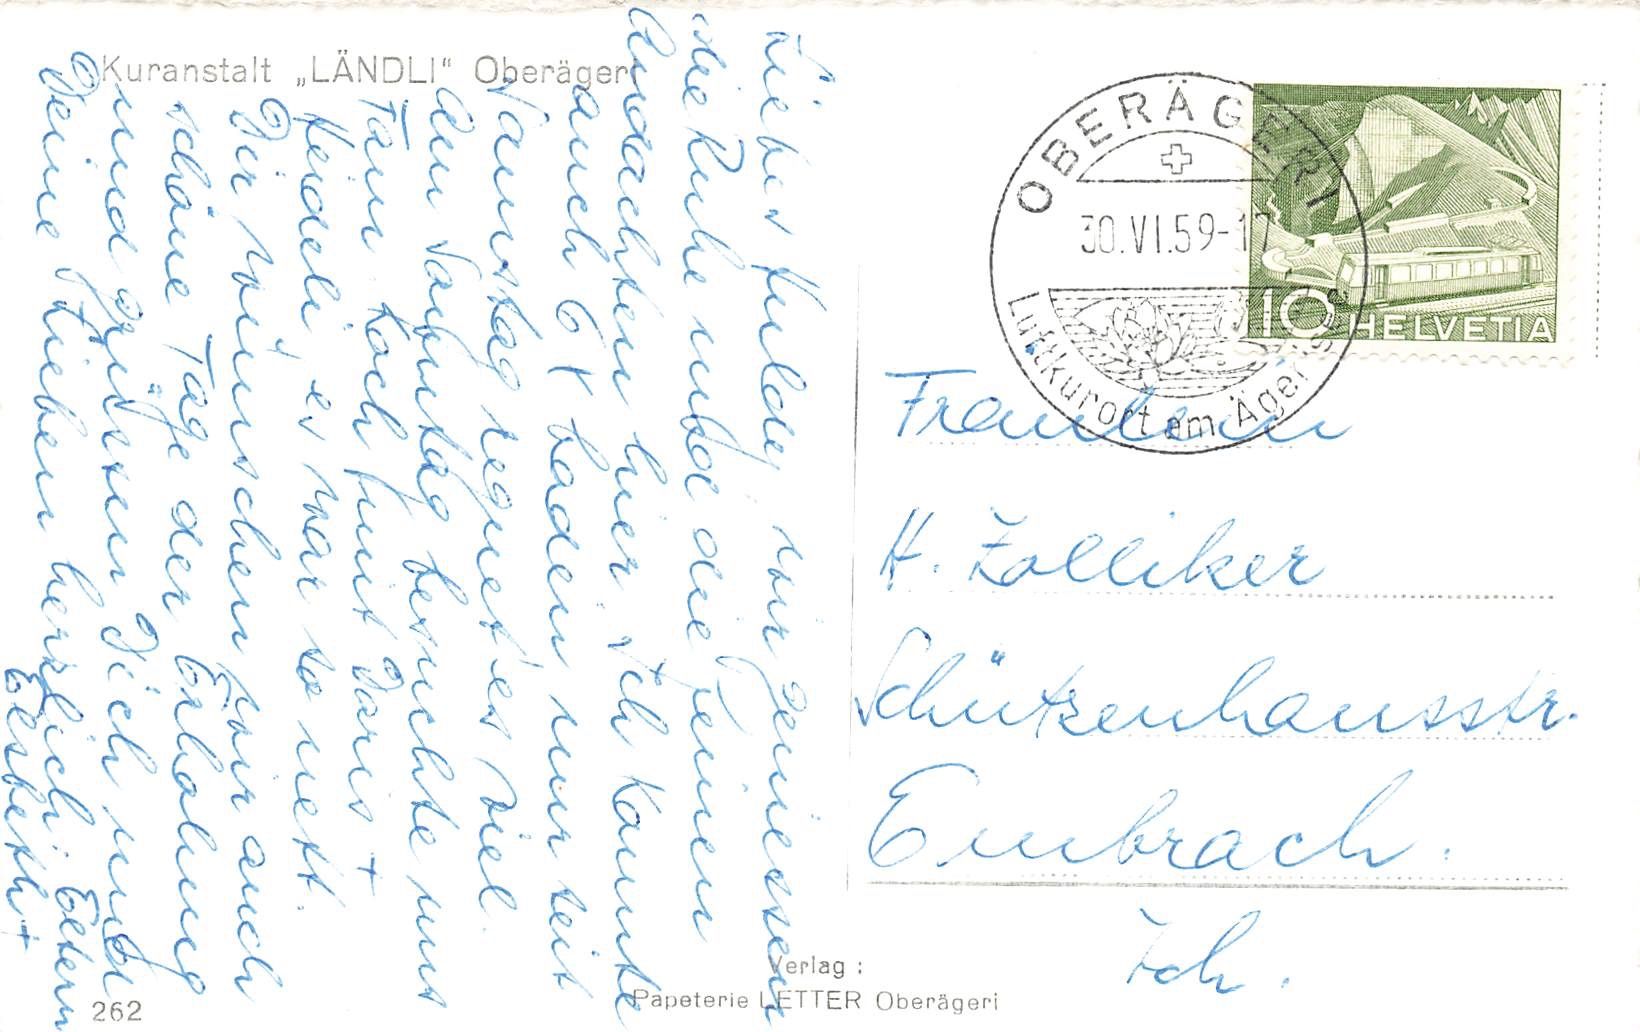 Kuranstalt „LÄNDLI“ Oberägeri
Liebes Huldy, wir geniessen
die Ruhe und die feinen
Andachten hier. Ich konnte
auch 6 x baden nur seit
Samstag regnet es viel.
Am Sonntag besuchte uns
Fam. Koch mit Doris +
Heideli, es war so nett.
Dir wünschen wir auch
schöne Tage der Erholung
und grüssen Dich und
Deine Lieben herzlich: Eltern
Elsbeth +
OBERÄGERI
30.VI.59-17
Luftkurort am Ägerisee
10 HELVETIA
Fräulein
H. Zolliker
Schützenhausstr.
Embrach.
Zch.
Verlag :
Papeterie LETTER Oberägeri
262